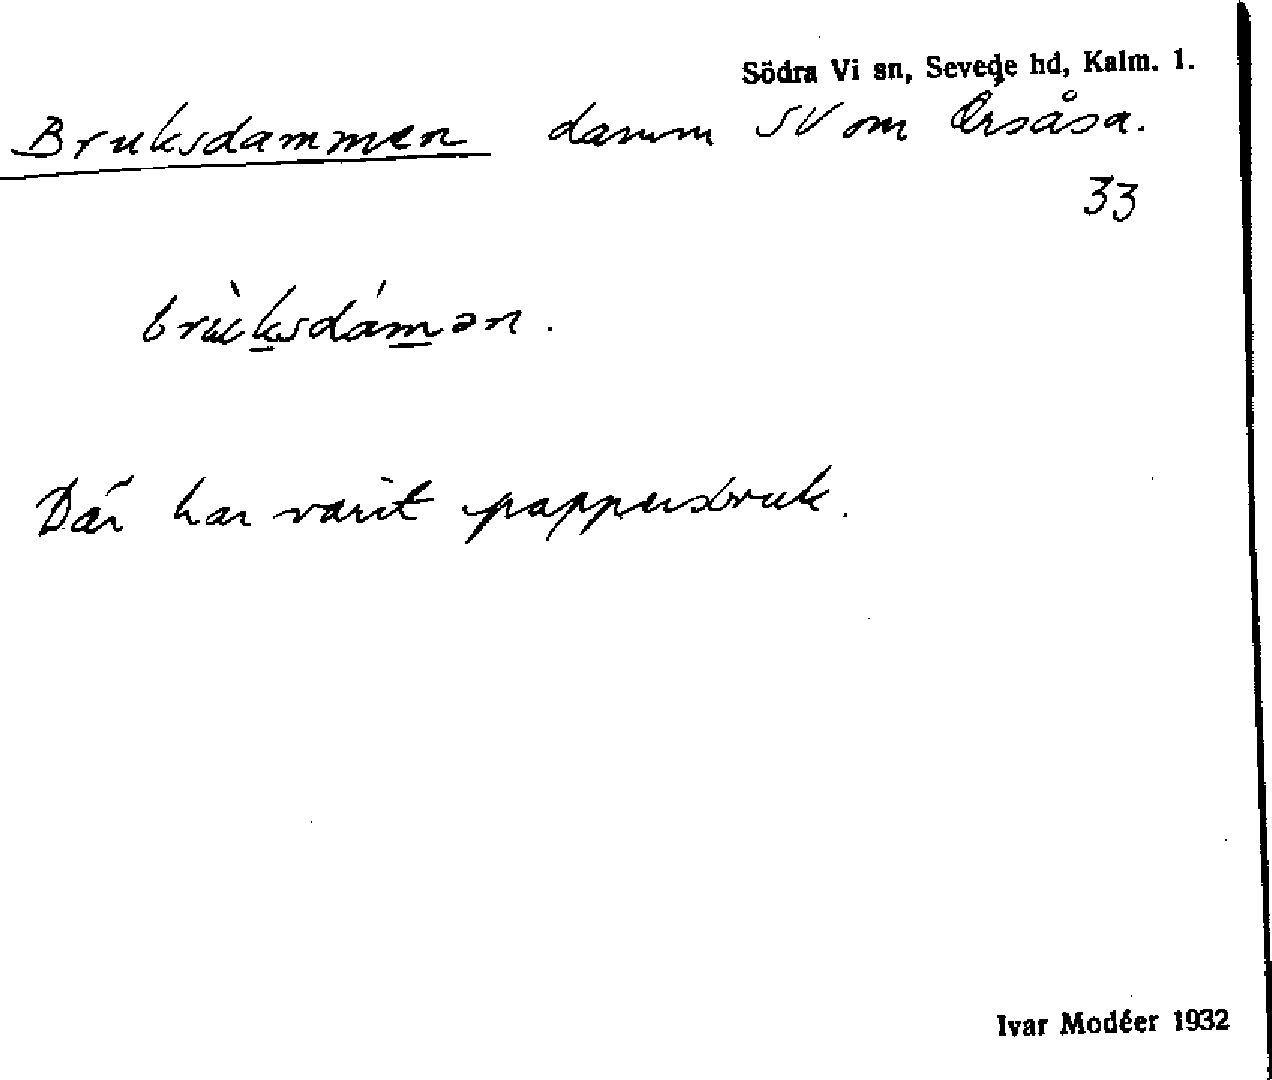 Södra Vi sn, Sevede hd, Kalm. l.
Bruksdammen damm SV om Örsåsa.
33
brùksdámən.
Där har varit pappersbruk.
Ivar Modéer 1932